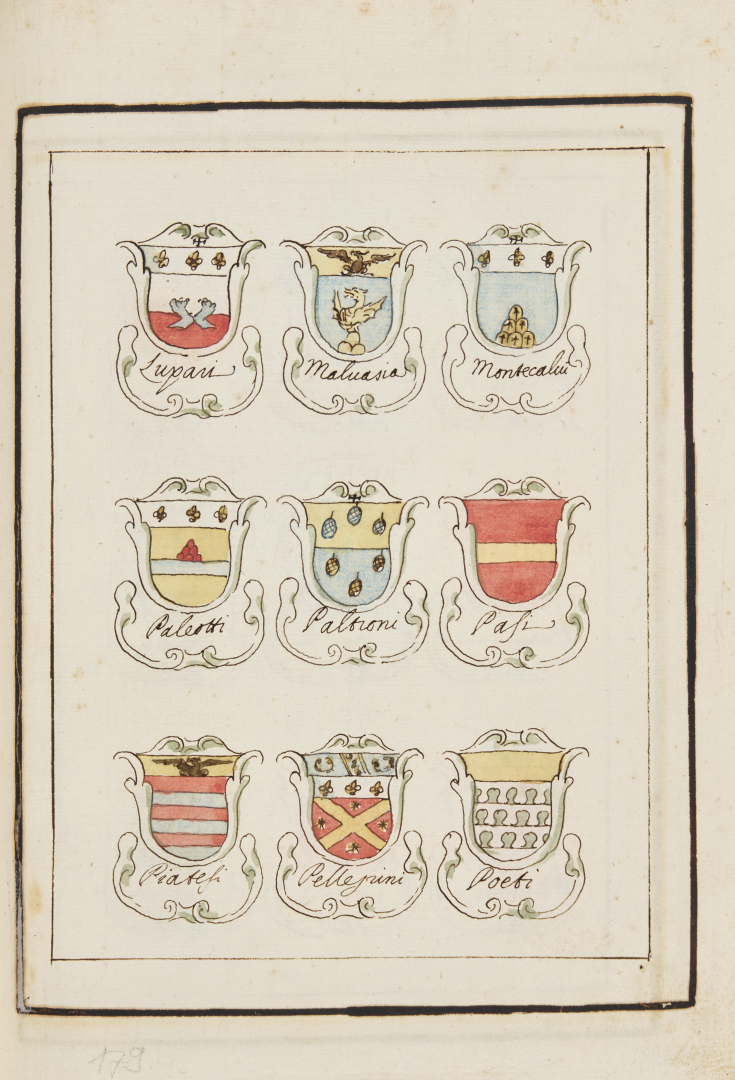 Lupari
Malvasia
Montecalvi
Paleotti
Paltroni
Pasi
Piatesi
Pellegrini
Poeti
179